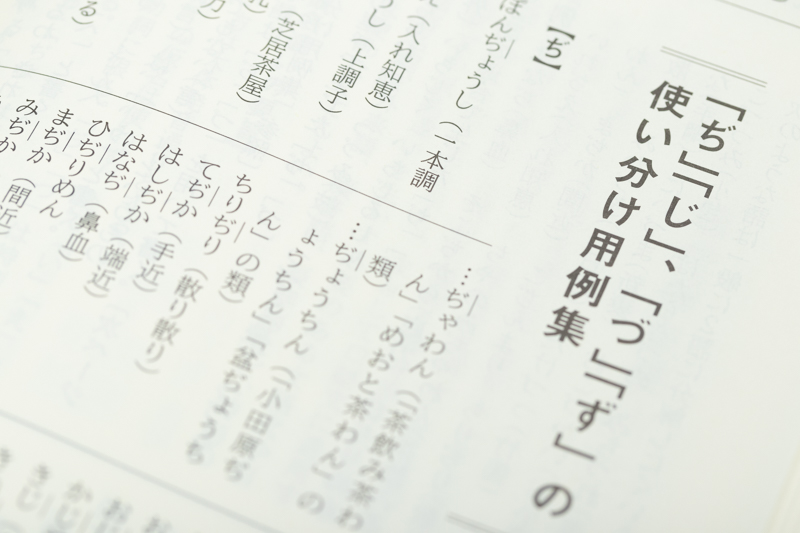 「ぢ」「じ」、「づ」「ず」の
使い分け用例集
【ぢ】
ぽんぢょうし（一本調
（入れ知恵）
うし（上調子）
（芝居茶屋）
…ぢゃわん（「茶飲み茶わ
ん」「めおと茶わん」の
類）
…ぢょうちん（「小田原ぢ
ょうちん」「盆ぢょうち
ん」の類）
ちりぢり（散り散り）
てぢか（手近）
はしぢか（端近）
はなぢ（鼻血）
ひぢりめん
まぢか（間近）
みぢか